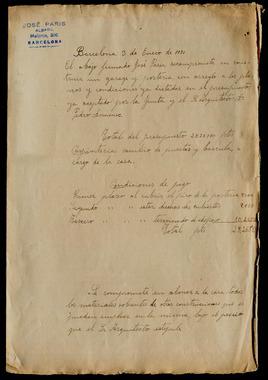 JOSÉ PARIS
ALBAÑIL
Mallorca,
BARCELONA
Barcelona 3 de Enero de 19
El abajo firmado José Paris se compromete a construir un garage y portería con arreglo a los
y condiciones ya dictadas en el presupuesto
ya aceptado por la Junta y el Sr Arquitecto D.
Pedro
Total del presupuesto pts
Carpintería cambio de puertas y bascula a
cargo de la casa.
Condiciones de pago
Primer plazo al cubrir el piso de la portería
Segundo " " estar de cubiertas
Tercero " " terminando el
Total pts
Se compromete en abonar a la casa todos
los materiales sobrantes de otras construcciones que se
puedan emplear en la misma, bajo el precio
que el Sr Arquitecto estipule